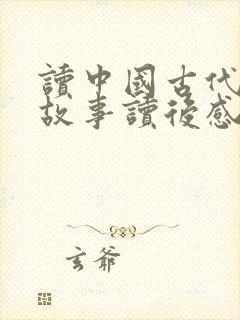 讀中國古代
故事讀後感
玄爺